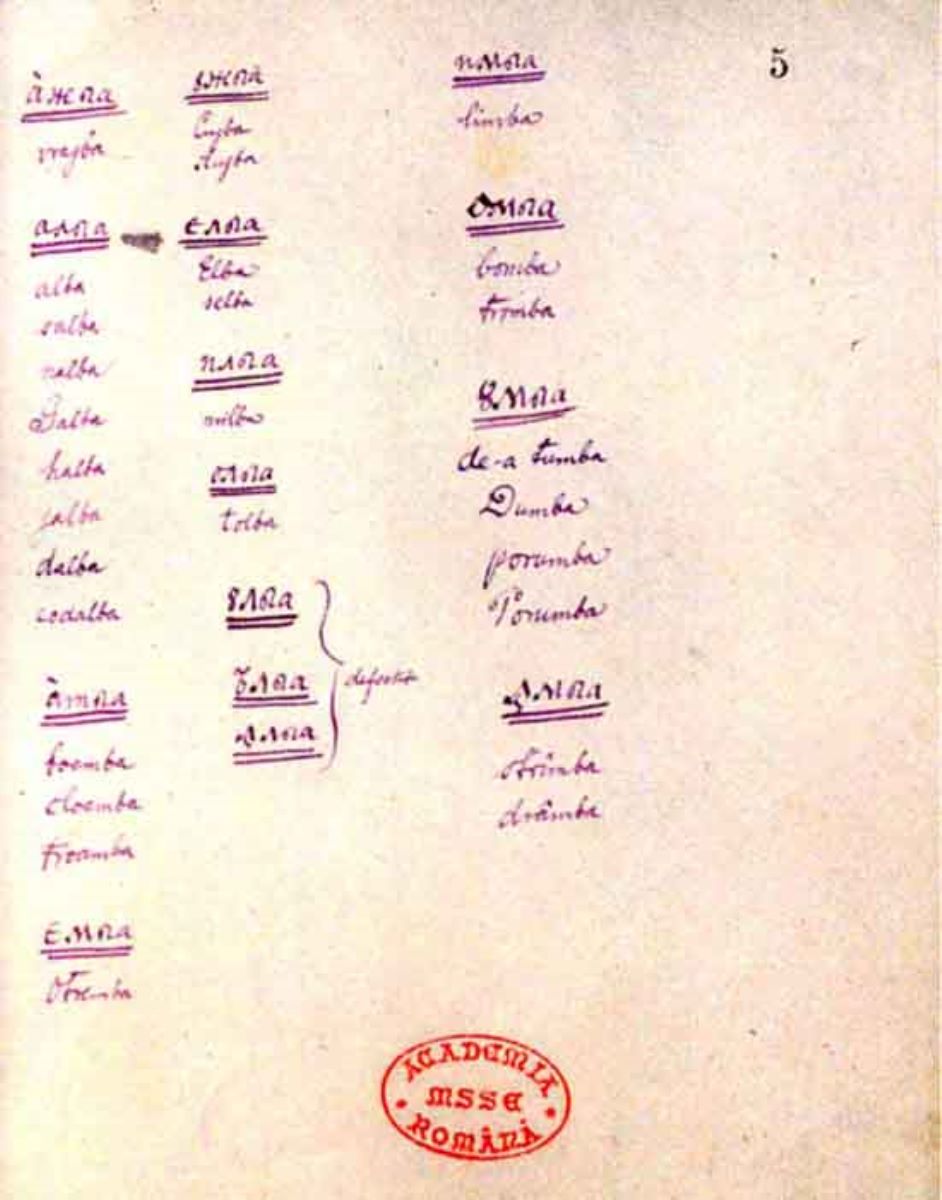 5
ажба
vrajba
алба
alba
salba
nalba
Galba
halba
jalba
dalba
codalba
амба
boamba
cloamba
troamba
емба
Otremba
ꙋжба
slujba
елба
Elba
selba
илба
milba
олба
tolba
ꙋлба
ълба
ꙟлба
defective
имба
limba
омба
bomba
tromba
ꙋмба
de-a tumba
Dumba
porumba
Porumba
ꙟмба
strâmba
drâmba
ACADEMIA
MSSE
ROMÂNĂ